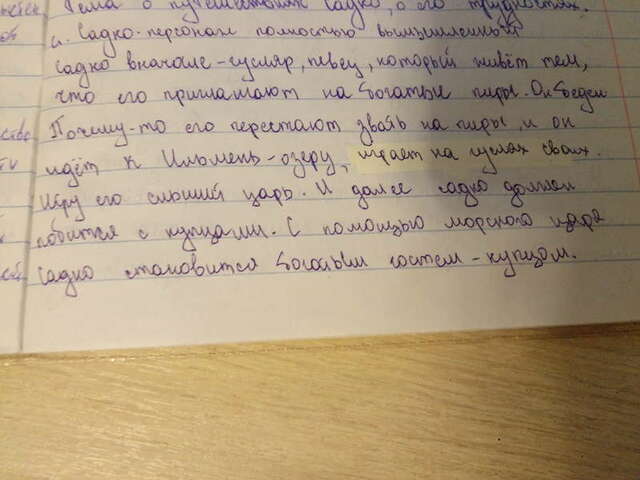 Тема о путешествиях Садко, о его трудностях.
и. Садко-персонаж полностью вымышленный
Садко вначале-гусляр, певец, который живёт тем,
что его приглашают на богатые пиры. Он беден
Почему-то его перестают звать на пиры, и он
идёт к Ильмень-озеру, играет на гуслях своих.
Игру его слышит царь. И далее Садко должен
побиться с купцами. С помощью морского царя
Садко становится богатым гостем-купцом.